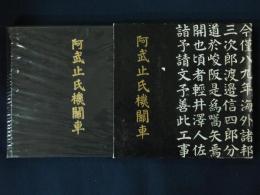 阿武止氏機關車
阿武止氏機關車
今僅八九年海外諸邦
三次郎渡邊信四郎分
道於峻阪是為嚆矢焉
開也頃者輕井澤人佐
諸予請文予善此工事